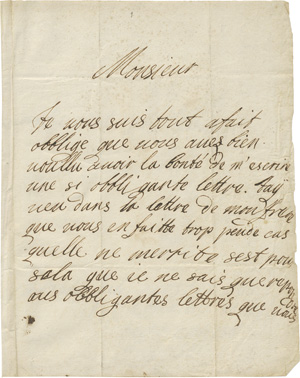 Monsieur
Je vous suis tout afait
obblige que vous aues bien
voullu avoir la bonté de m'escrire
une si obbligante lettre. Jay
veu dans la lettre de mon frere
que vous en faitte trop peude cas
quelle ne merite sest pour
sala que ie ne sais que repon
aus obbligantes lettres que vous